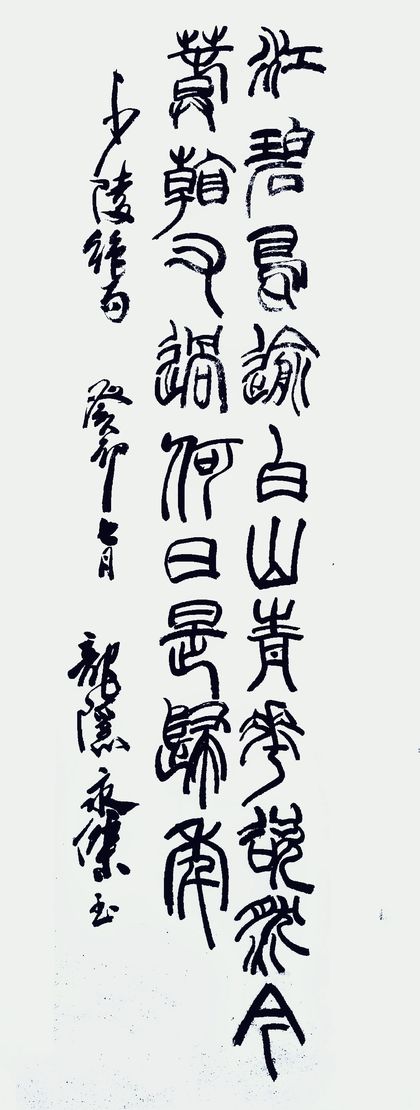 江碧鳥逾白山青華欲然今
春看又過何日是歸年
少陵絕句 癸卯七月 龍隱永傑書